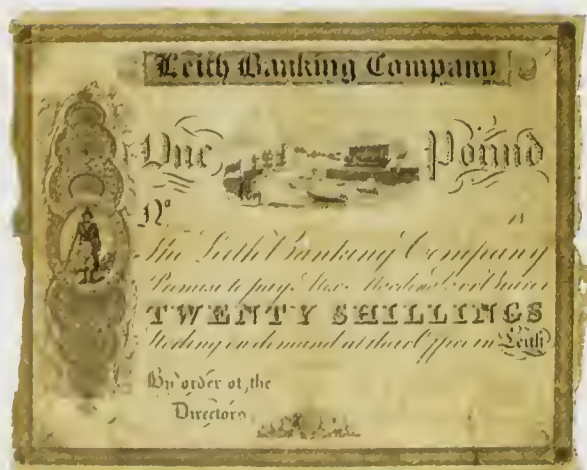 Leith Banking Company
One Pound
No. 18
The Leith Banking Company
Promise to pay the Bearer
TWENTY SHILLINGS
Sterling on demand at their Office in Leith
By order of the
Directors